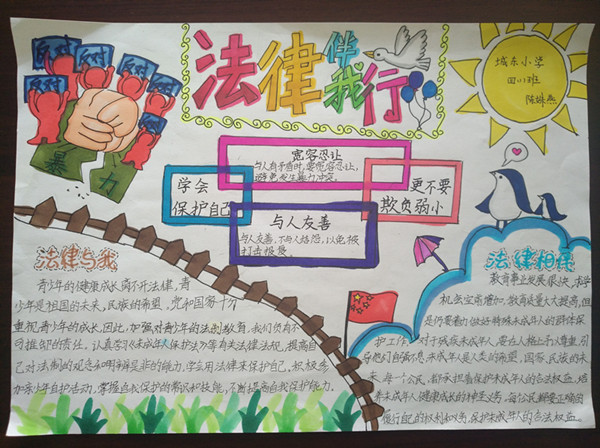 反对
反对
反对
反对
反对
反对
暴力
法律伴我行
城东小学
四(1)班
陈姝燕
宽容忍让
与人有矛盾时,要宽容忍让,
避免发生暴力冲突。
学会
保护自己
更不要
欺负弱小
与人友善
与人友善,不与人结怨,以免被
打击报复。
法律与我
青少年的健康成长离不开法律,青
少年是祖国的未来,民族的希望,党和国家十分
重视青少年的成长,因此,加强对青少年的法制教育,我们负有不
可推卸的责任。认真学习《未成年人保护法》等有关法律法规,提高自
己对法制的观念和明辨是非的能力,学会用法律来保护自己,积极参
加青少年自护活动,掌握自我保护的常识和技能,不断提高自我保护能力。
法律相伴
教育事业发展很快,求学
机会显著增加,教育质量大大提高,但
是仍要着力做好特殊未成年人的群体保
护工作,对于残疾未成年人,要在人格上予以尊重,引
导他们自强不息,未成年是人类的希望,国家、民族的未
来,每一个公民,都承担着保护未成年人的合法权益,培
养未成年人健康成长的神圣义务,每位公民都要正确的
履行自己的权利和义务,保护未成年人的合法权益。